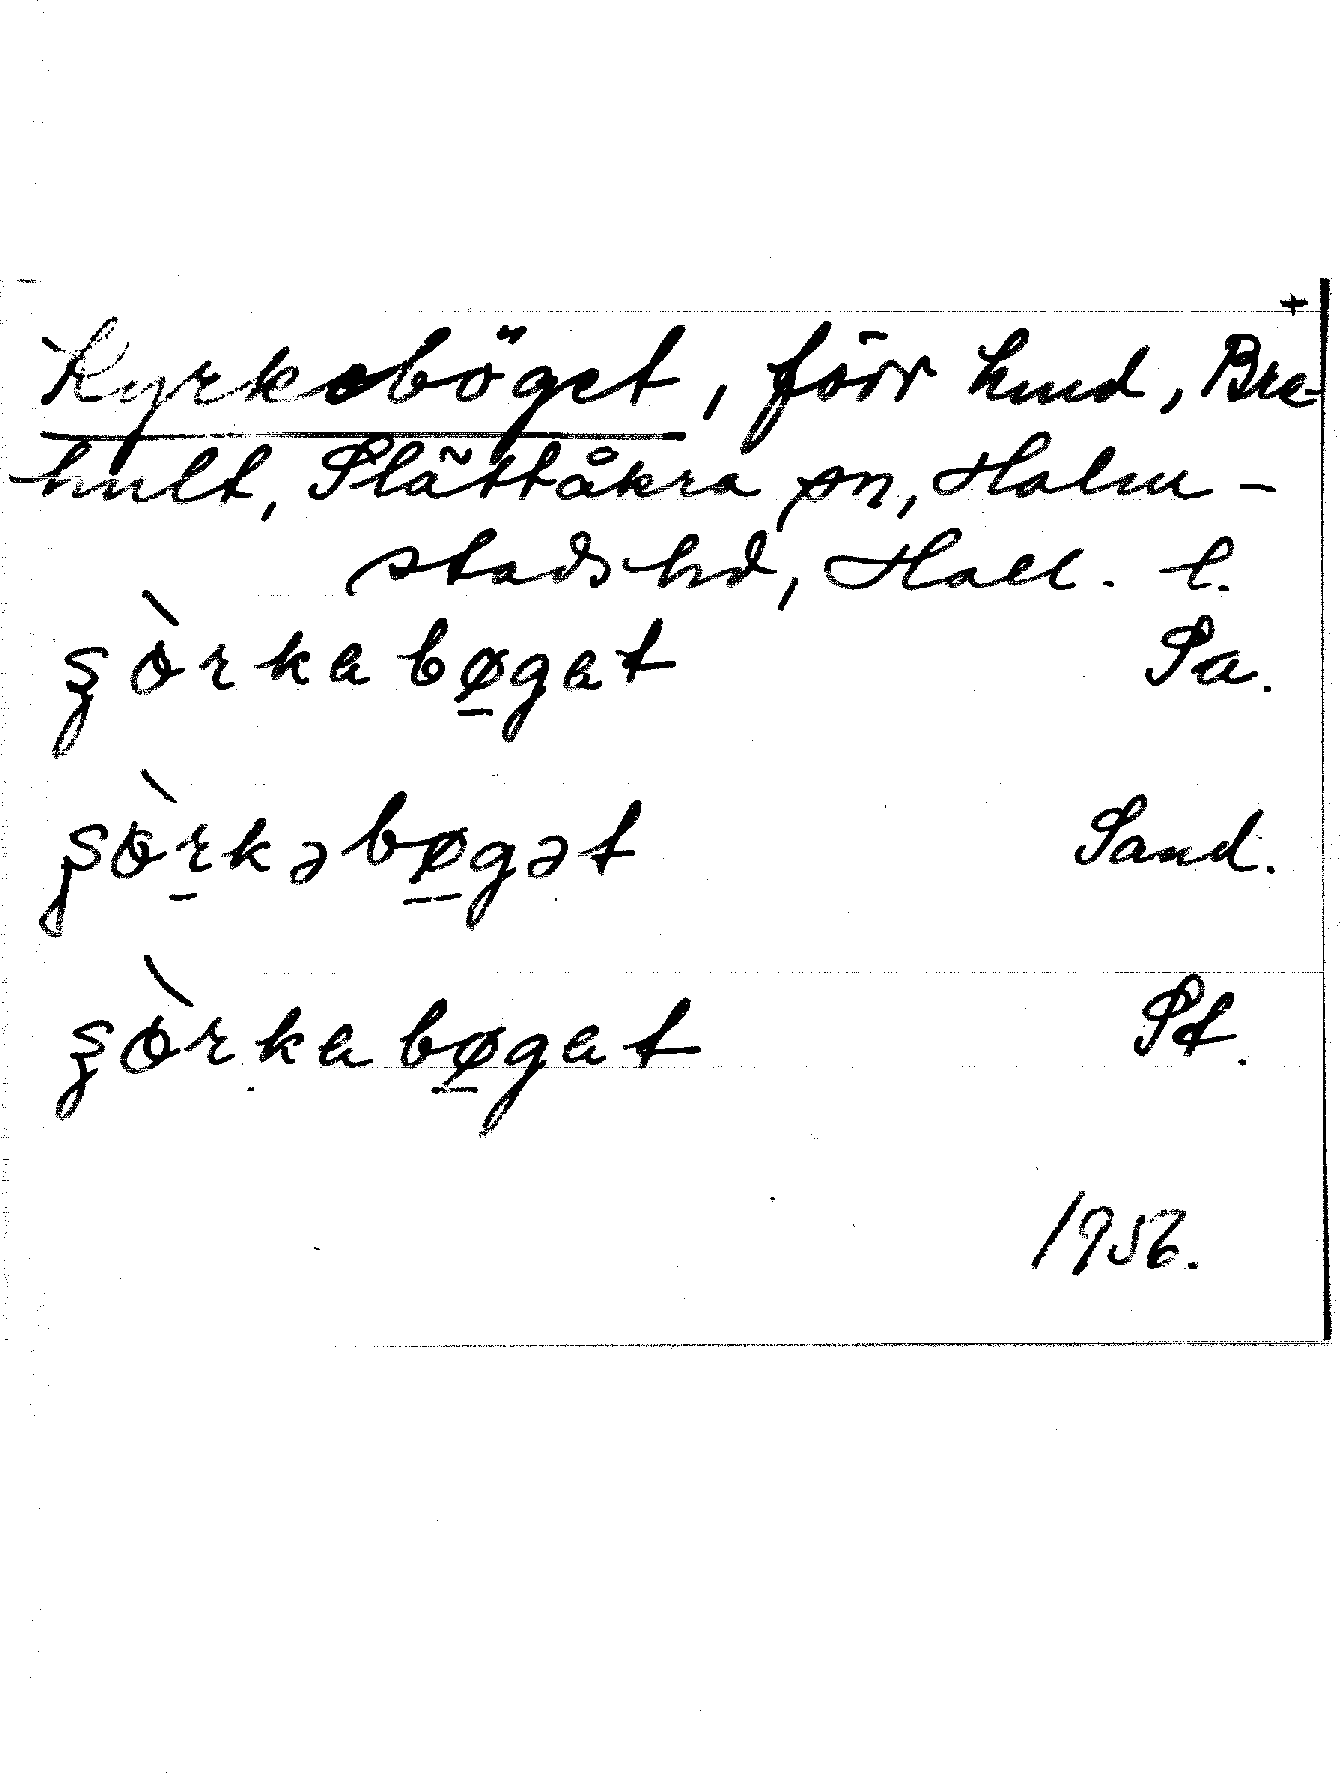 +
Kyrkeböget, förr hmd, Bre-
hult, Slättåkra sn, Halm-
stads hd, Hall. l.
şòrkabøgat Sa.
şòrkəbøgət Sand.
şòrkabøgat St.
1956.